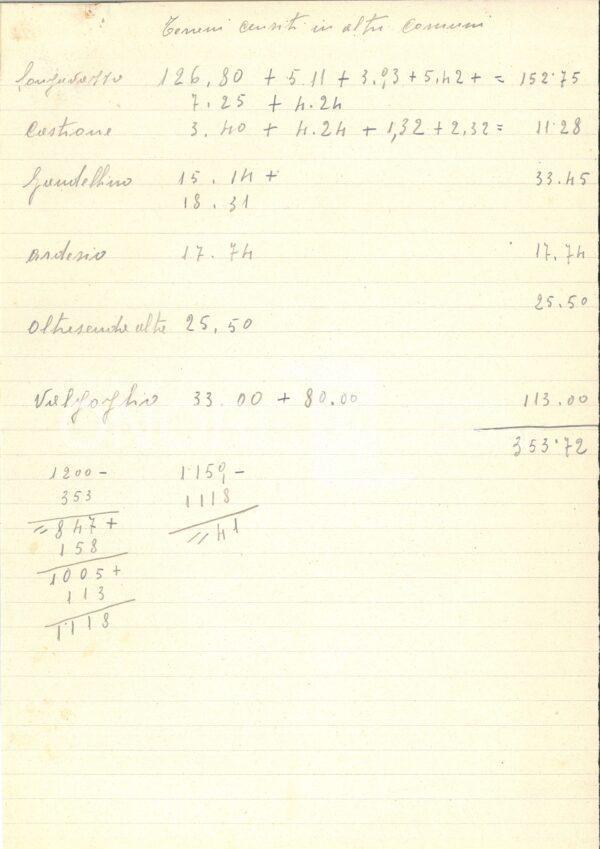 Terreni censiti in altri Comuni
Songavazzo 126,80 + 5.11 + 3,93 + 5,42 + = 152.75
7.25 + 4.24
Castione 3.40 + 4.24 + 1,32 + 2,32 = 11.28
Gandellino 15.14 + 33.45
18.31
Ardesio 17.74 17.74
25.50
Oltresenda alta 25,50
Valgoglio 33.00 + 80.00 113.00
353.72
1200 - 1159 -
353 1118
= 847 + = 41
158
1005 +
113
1118